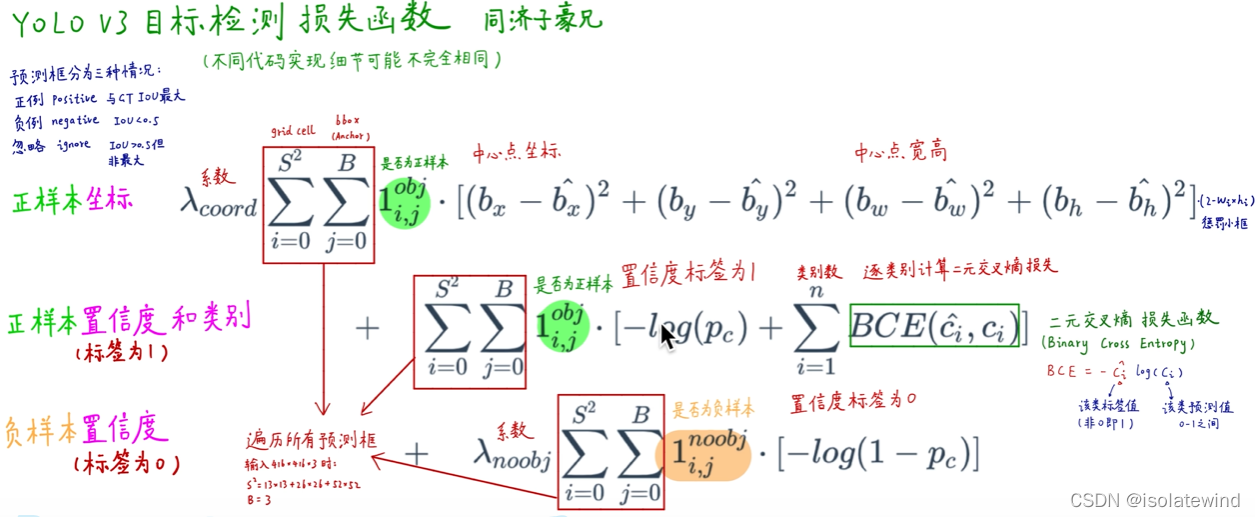 YOLO V3 目标检测 损失函数 同济子豪兄
(不同代码实现细节可能不完全相同)
预测框分为三种情况:
正例 positive 与GT IOU最大
负例 negative IOU<0.5
忽略 ignore IOU>0.5但
非最大
grid cell
bbox
(Anchor)
正样本坐标
系数
是否为正样本
中心点坐标
中心点宽高
λ_coord ∑_{i=0}^{S^2} ∑_{j=0}^{B} 1_{i,j}^{obj} · [(b_x − \hat{b_x})^2 + (b_y − \hat{b_y})^2 + (b_w − \hat{b_w})^2 + (b_h − \hat{b_h})^2] ·(2-wi×hi)
惩罚小框
正样本置信度和类别
(标签为1)
是否为正样本
置信度标签为1
类别数
逐类别计算二元交叉熵损失
+ ∑_{i=0}^{S^2} ∑_{j=0}^{B} 1_{i,j}^{obj} · [−log(p_c) + ∑_{i=1}^{n} BCE(ĉ_i, c_i)]
二元交叉熵 损失函数
(Binary Cross Entropy)
BCE = - ĉi log(ci)
该类标签值
(非0即1)
该类预测值
0-1之间
负样本置信度
(标签为0)
系数
是否为负样本
置信度标签为0
+ λ_noobj ∑_{i=0}^{S^2} ∑_{j=0}^{B} 1_{i,j}^{noobj} · [−log(1 − p_c)]
遍历所有预测框
输入416×416×3时:
S²=13×13+26×26+52×52
B=3
CSDN @isolatewind